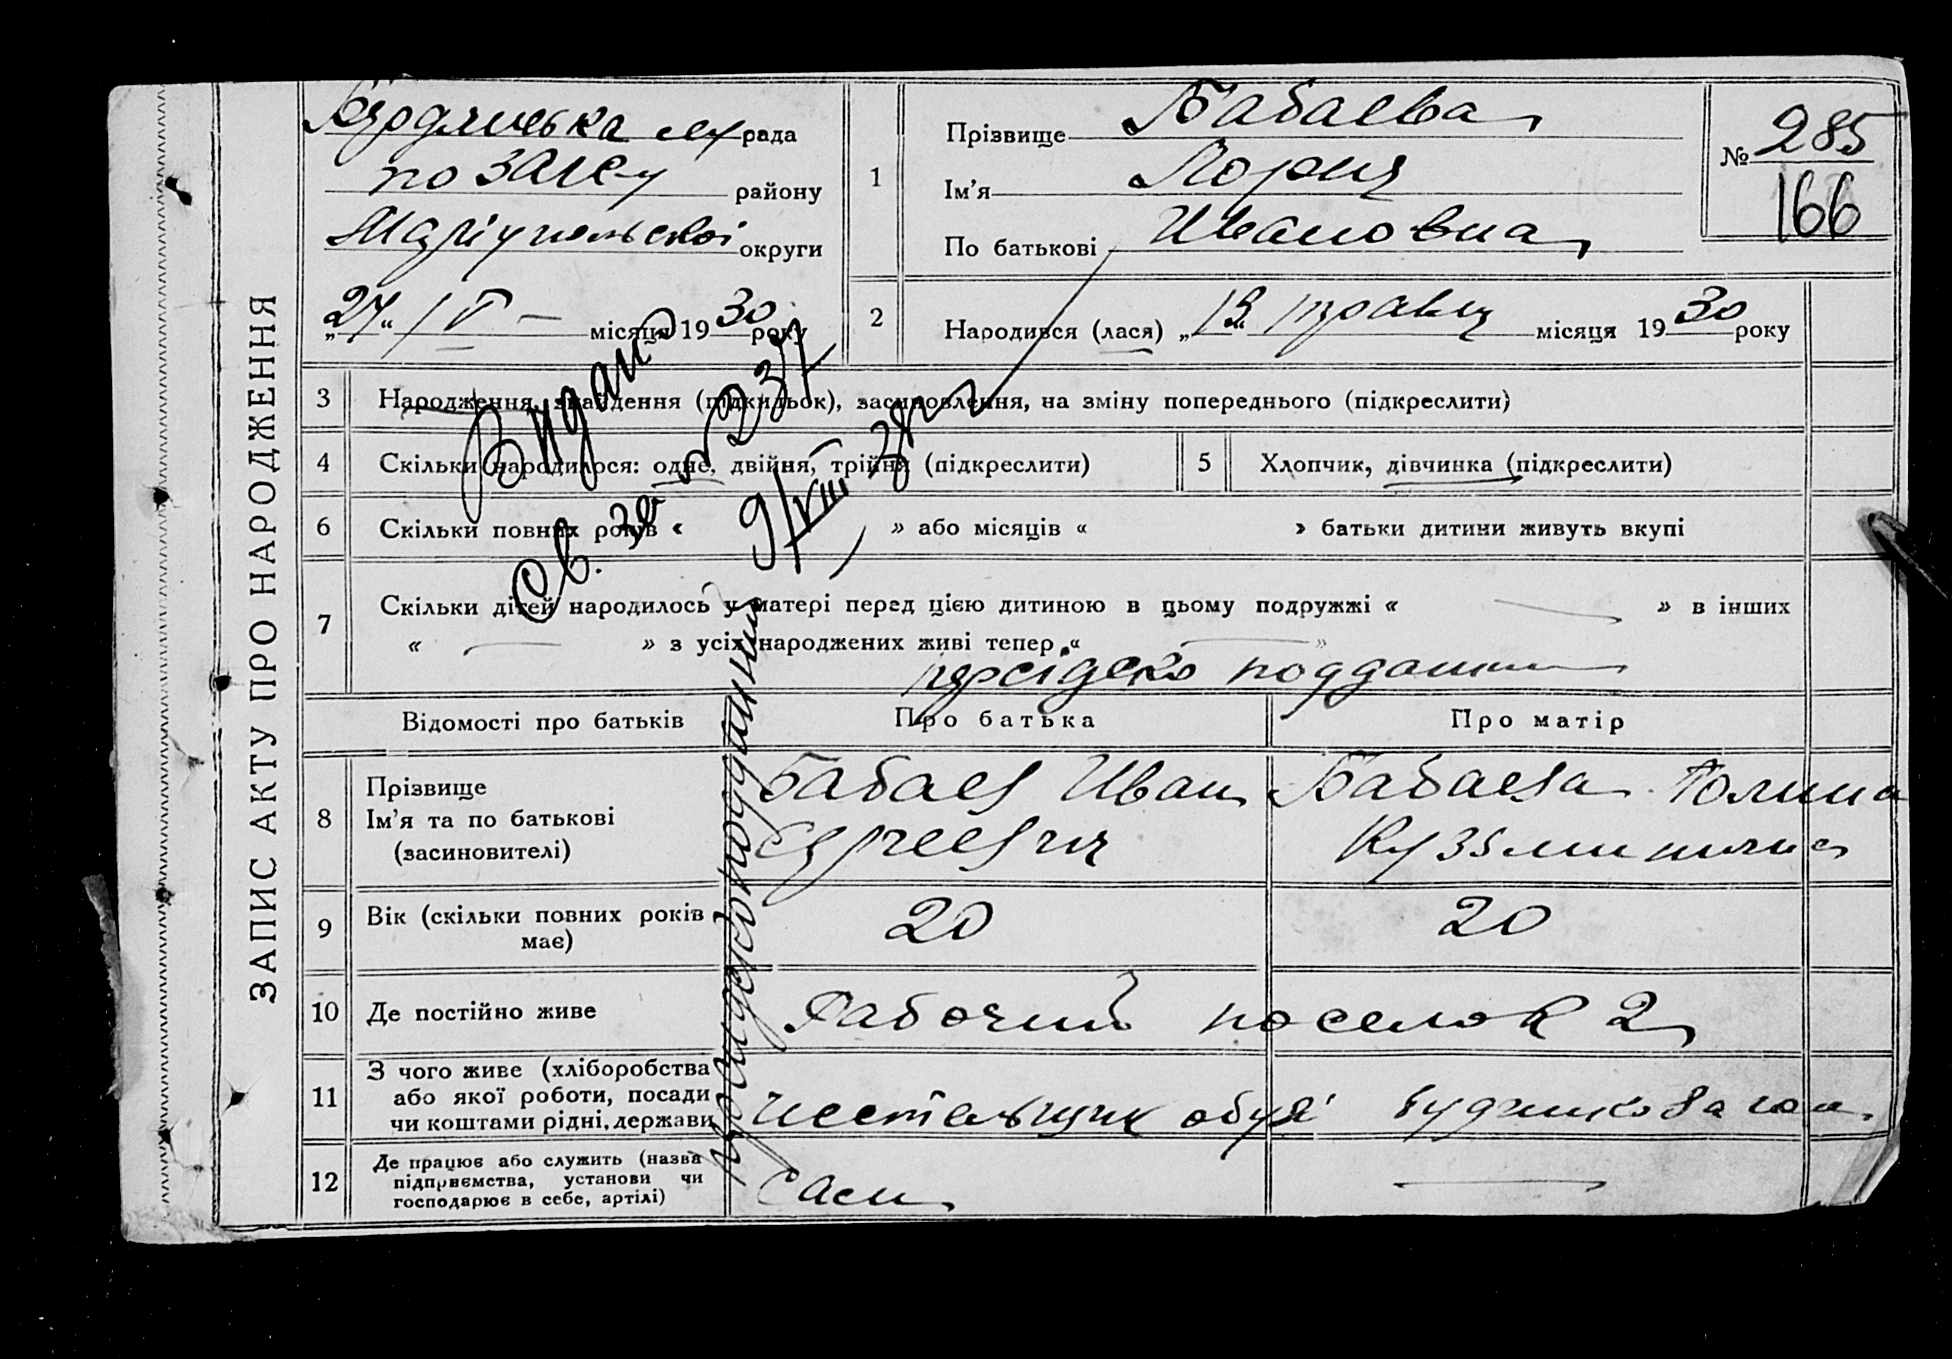 ЗАПИС АКТУ ПРО НАРОДЖЕННЯ
рада
по загсу району
Маріупольской округи
„24“ IV — місяця 1930 року
1
Прізвище Бабаева
Ім’я Лория
По батькові Ивановна
№ 285
166
2
Народився (лася) „13“ травня місяця 1930 року
3 Народження, знайдення (підкидьок), засиновлення, на зміну попереднього (підкреслити)
4 Скільки народилося: одне, двійня, трійня (підкреслити)
5 Хлопчик, дівчинка (підкреслити)
6 Скільки повних років « » або місяців « » батьки дитини живуть вкупі
7 Скільки дітей народилось у матері перед цією дитиною в цьому подружжі « — » в інших
« — » з усіх народжених живі тепер „ — “
Видано
Св. за № 237
9/VIII
персідско поддани
Відомості про батьків
Про батька
Про матір
8
Прізвище
Ім’я та по батькові
(засиновителі)
Бабаев Иван
Сергеевич
Бабаева
9
Вік (скільки повних років має)
20
20
10 Де постійно живе
Рабочий поселок 2
11
З чого живе (хліборобства
або якої роботи, посади
чи коштами рідні, держави
обуві
12
Де працює або служить (назва
підприємства, установи чи
господарює в себе, артілі)
сам
—